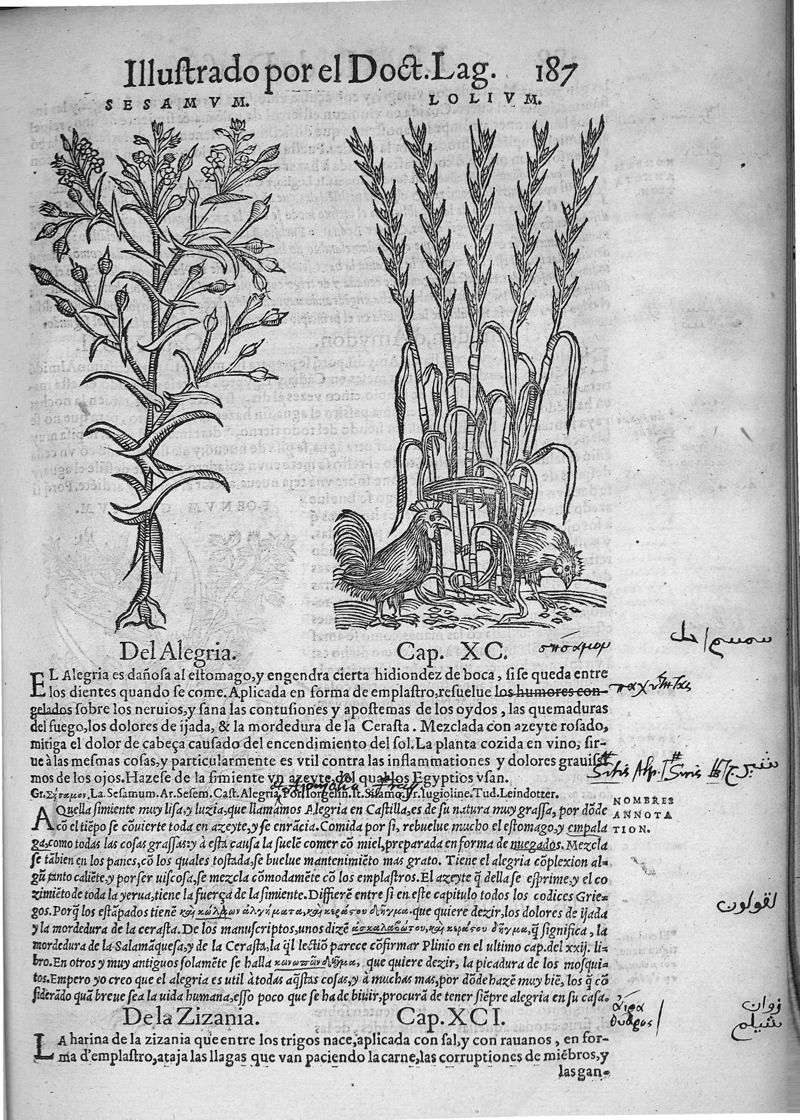 Illustrado por el Doct. Lag. 187
SESAMVM. LOLIVM.
Del Alegria. Cap. XC.
EL Alegria es dañosa al estomago, y engendra cierta hidiondez de boca, si se queda entre
los dientes quando se come. Aplicada en forma de emplastro, resuelue los humores con-
gelados sobre los neruios, y sana las contusiones y apostemas de los oydos, las quemaduras
del fuego, los dolores de ijada, & la mordedura de la Cerasta. Mezclada con azeyte rosado,
mitiga el dolor de cabeça causado del encendimiento del sol. La planta cozida en vino, sir-
ue à las mesmas cosas, y particularmente es vtil contra las inflammationes y dolores grauiss-
mos de los ojos. Hazese de la simiente vn azeyte del qual los Egyptios vsan.
Gr. Σήσαμον, La. Sesamum. Ar. Sesem. Cast. Alegria. Por. Iorgelin. It. Sisamo. Fr. Iugioline. Tud. Leindotter.
NOMBRES
ANNOTA
TION.
AQuella simiente muy lisa, y luzia, que llamamos Alegria en Castilla, es de su natura muy grassa, por dõde
cõ el tiẽpo se cõuierte toda en azeyte, y se enrãcia. Comida por si, rebuelue mucho el estomago, y empala
ga, como todas las cosas grassas: y à esta causa la suelẽ comer cõ miel, preparada en forma de nuegados. Mezcla
se tãbien en los panes, cõ los quales tostada, se buelue mantenimiẽto mas grato. Tiene el alegria cõplexion al-
gũ tanto caliẽte, y por ser uiscosa, se mezcla cõmodamẽte cõ los emplastros. El azeyte q̃ della se esprime, y el co
zimiẽto de toda la yerua, tiene la fuerça de la simiente. Differẽ entre si en este capitulo todos los codices Grie-
gos. Porq̃ los estãpados tienẽ καὶ κώλων ἀλγήματα, καὶ κεράστου δῆγμα. que quiere dezir, los dolores de ijada
y la mordedura de la cerasta. De los manuscriptos, unos dizẽ ἀσκαλαβώτου, καὶ κεράστου δῆγμα, q̃ significa, la
mordedura de la Salamãquesa, y de la Cerasta, la q̃l lectiõ parece cõfirmar Plinio en el ultimo cap. del xxij. li-
bro. En otros y muy antiguos solamẽte se halla κωνώπων δῆγμα, que quiere dezir, la picadura de los mosqui-
tos. Empero yo creo que el alegria es util à todas aq̃stas cosas, y à muchas mas, por dõde hazẽ muy biẽ, los q̃ cõ
siderãdo quã breue sea la uida humana, esso poco que se ha de biuir, procurã de tener siẽpre alegria en su casa.
De la Zizania. Cap. XCI.
LA harina de la zizania que entre los trigos nace, aplicada con sal, y con rauanos, en for-
ma d'emplastro, ataja las llagas que van paciendo la carne, las corruptiones de miẽbros, y
las gan-
لقولون
αἶρα
زوان
شيلم